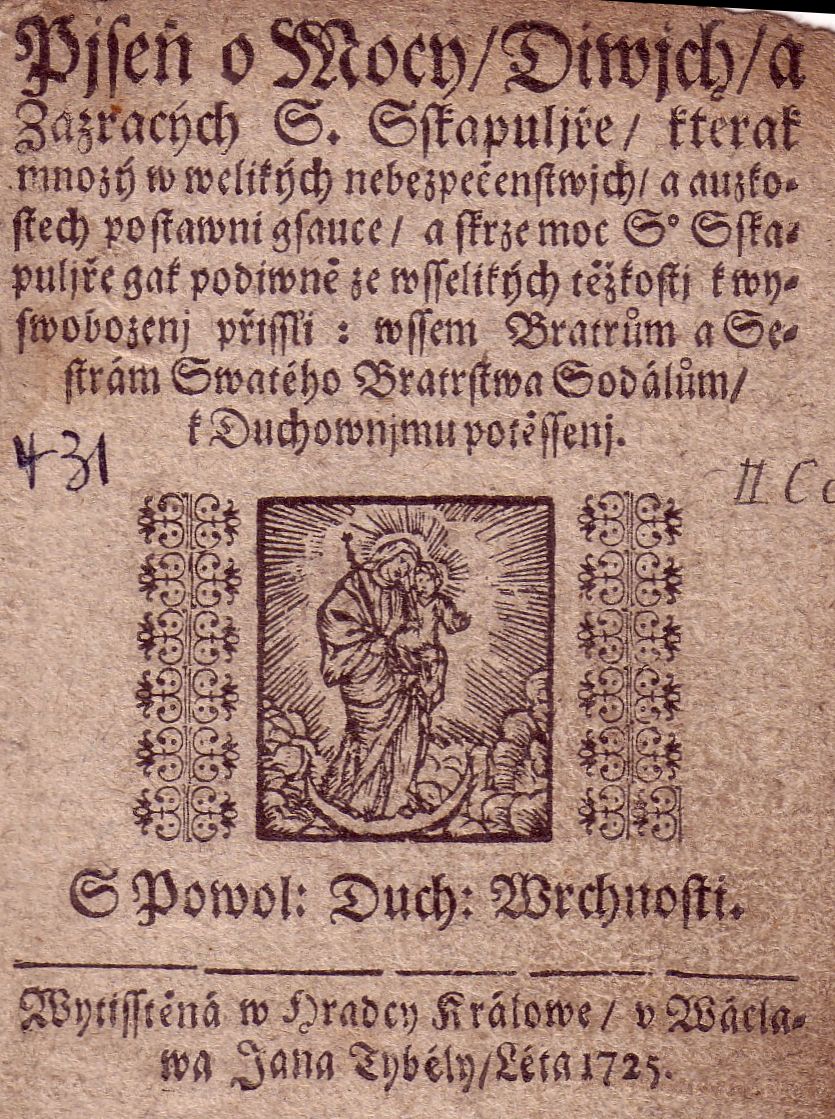 Pjseň o Mocy/ Diwjch/ a
Zázracých S. Sskapuljře/ kterak
mnozý w welikých nebezpečenstwjch/ a auzko-
stech postawni gsauce/ a skrze moc S° Sska-
puljře gak podiwně ze wsselikých těžkostj k wy-
swobozenj přissli : wssem Bratrům a Se-
strám Swatého Bratrstwa Sodálům/
k Duchownjmu potěssenj.
431
II C
S Powol: Duch: Wrchnosti.
Wytisstěná w Hradcy Králowe/ v Wácla-
wa Jana Tybély/ Léta 1725.